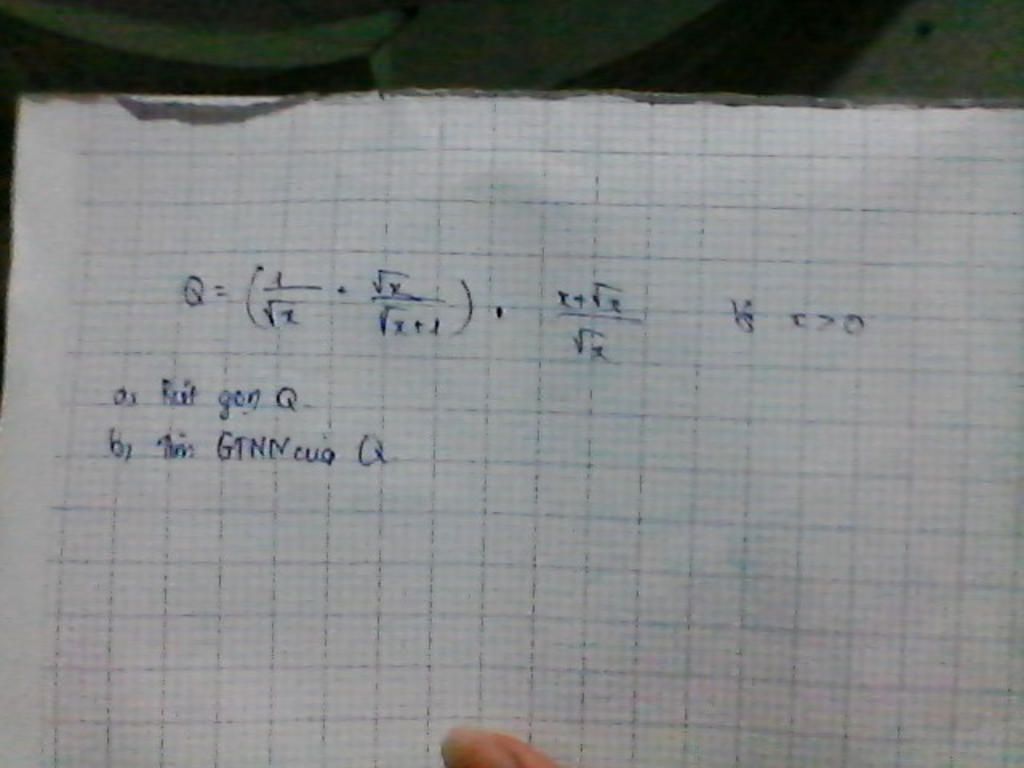 Q = (1/√x + √x/(√x+1)) . (x+√x)/√x với x > 0
a, Rút gọn Q
b, Tìm GTNN của Q